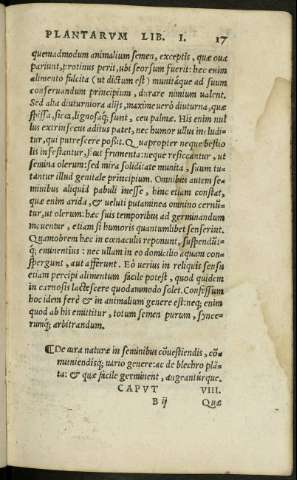 PLANTARVM LIB. I. 17
quemadmodum animalium semen, exceptis, quæ oua
pariunt, protinus perit, ubi seorsum fuerit: hæc enim
alimento fulcita (ut dictum est) munitáque ad suum
conseruandum principium, durare nimium ualent.
Sed alia diuturniora alijs, maxime uerò diuturna, quæ
spissa, sicca, lignosaq́; sunt, ceu palmæ. His enim nul
lus extrinsecus aditus patet, nec humor ullus includi=
tur, qui putrescere possit. Quapropter neque bestio
lis infestantur, sicut frumenta: neque resiccantur, ut
semina olerum: sed mira soliditate munita, suum tu=
tantur illud genitale principium. Omnibus autem se=
minibus aliquid pabuli inesse, hinc etiam constat,
quòd enim arida, & ueluti putamina omnino cernũ=
tur, ut olerum: hæc suis temporibus ad germinandum
incuentur, etiam si humoris quantumlibet senserint.
Quamobrem hæc in cœnaculis reponunt, suspendũt=
q́; eminentius: nec ullam in eo domicilio aquam con=
spergunt, aut afferunt. Eò uerius in reliquis semen
etiam percipi alimentum facile potest, quod quidem
in carnosis lactescere quodammodo solet. Confessum
hoc idem ferè & in animalium genere est: neq; enim
quod ab his emittitur, totum semen purum, synce=
rumq́; arbitrandum.
¶De cura naturæ in seminibus cõuestiendis, cõ=
muniendisq́; uario genere: ac de blechro plã=
ta: & quæ facile germinent, augeantúrque.
CAPVT VIII.
B ij Quæ